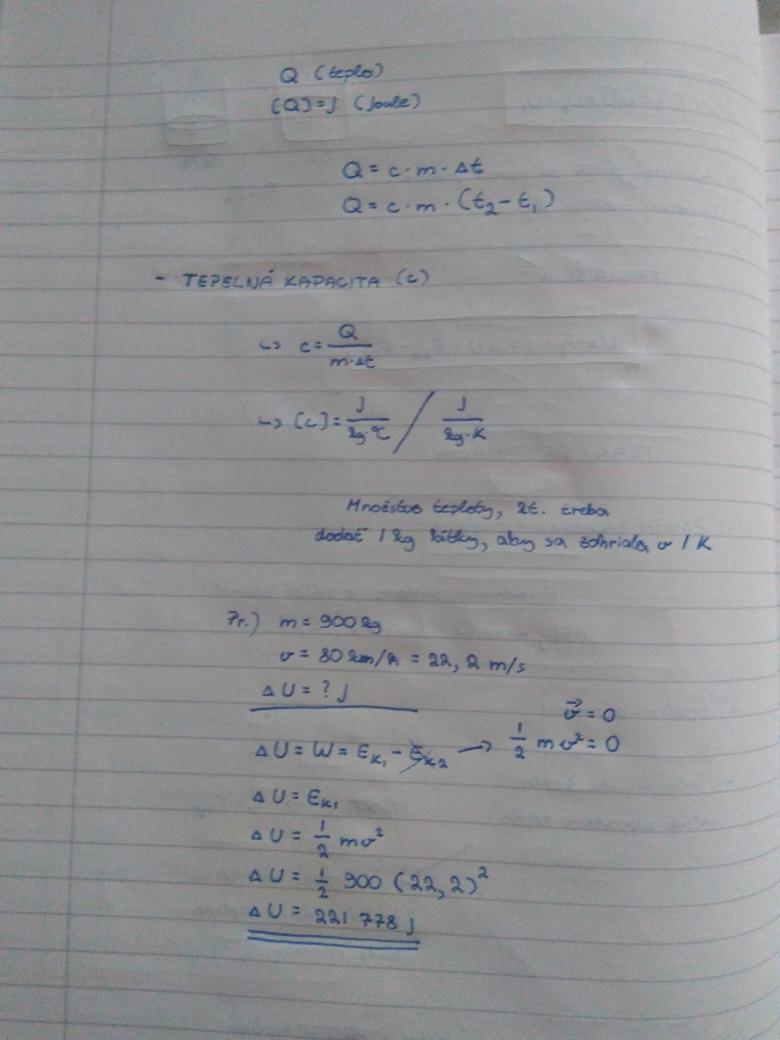 Q (teplo)
[Q] = J (Joule)
Q = c · m · Δt
Q = c · m · (t₂ - t₁)
- TEPELNÁ KAPACITA (c)
↳ c = Q / m·Δt
↳ [c] = J / kg·°C / J / kg·K
Množstvo teploty, kt. treba
dodať 1 kg látky, aby sa zohriala o 1 K
Pr.) m = 900 kg
v = 80 km/h = 22,2 m/s
ΔU = ? J
v⃗ = 0
ΔU = W = Eₖ₁ - Eₖ₂ → 1/2 mv² = 0
ΔU = Eₖ₁
ΔU = 1/2 mv²
ΔU = 1/2 900 (22,2)²
ΔU = 221 778 J